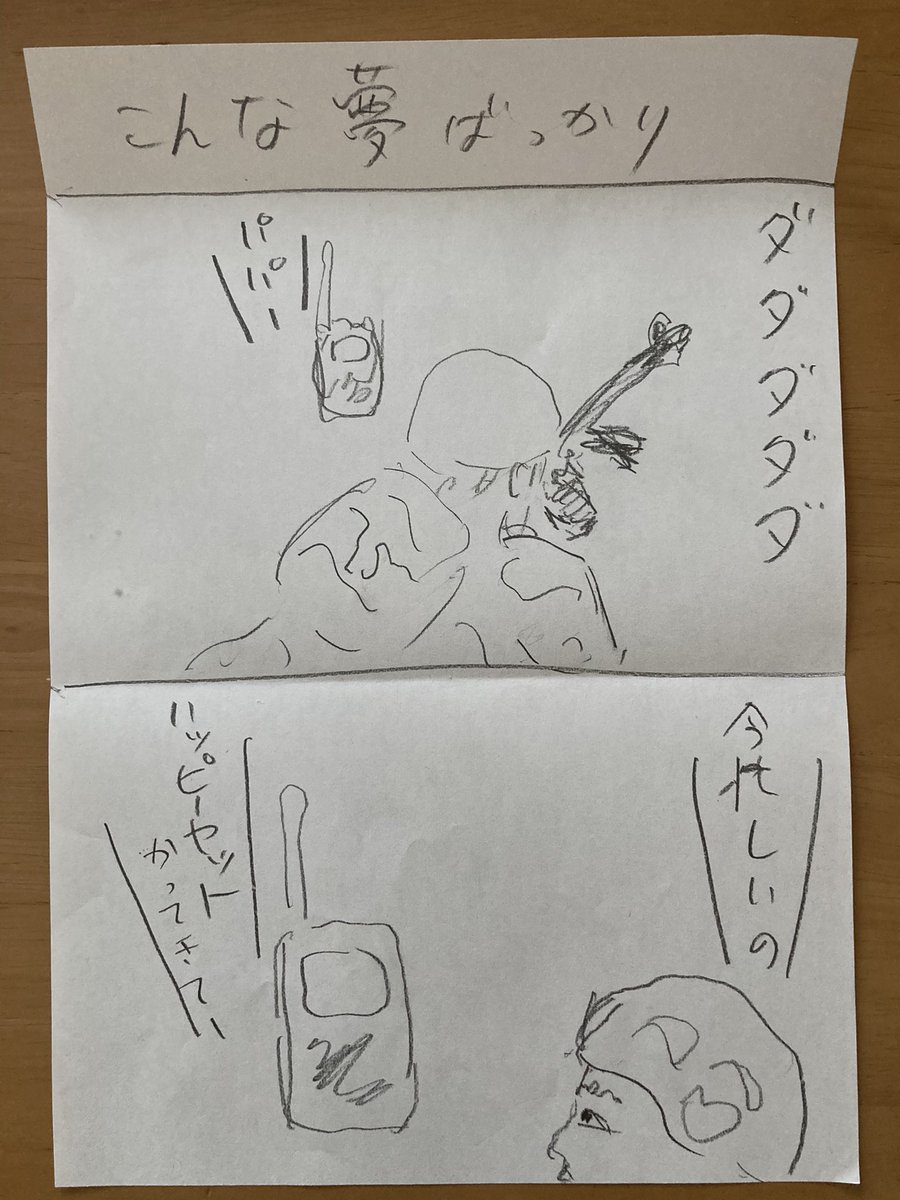 こんな夢ばっかり
ダダダダダ
パパー
今忙しいの
ハッピーセット
かってきてい